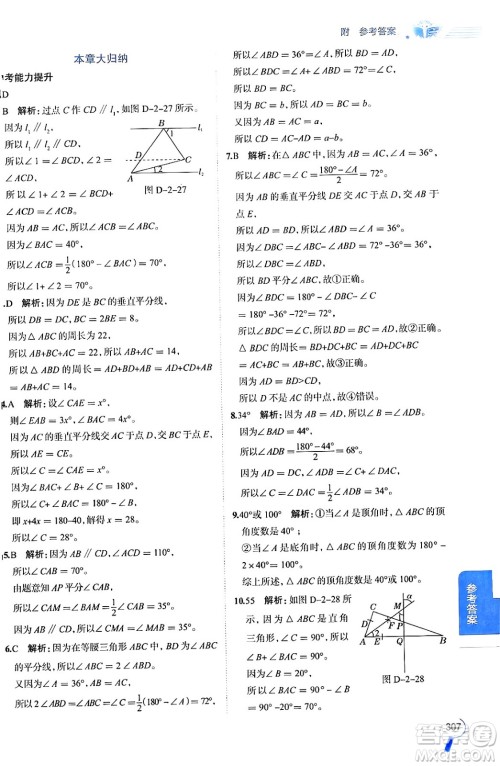 附 参考答案
本章大归纳
考能力提升
D
B 解析：过点 C 作 CD ∥ l₁ 如图 D-2-27 所示。
因为 l₁ ∥ l₂，
所以 l₁ ∥ l₂ ∥ CD，
所以∠1=∠BCD，∠2=∠ACD，
所以∠1+∠2=∠ABC。
因为 AB=AC，
所以∠ACB=∠ABC。
因为∠BAC=40°，
所以∠ABC=1/2(180°-∠BAC)=70°，
所以∠1+∠2=70°。
B
l₁
D
C
A
l₂
1
2
图 D-2-27
.D 解析：因为 DE 是 BC 的垂直平分线，
所以 DB=DC，BC=2BE=8。
因为△ABC 的周长为 22，
所以 AB+BC+AC=22，所以 AB+AC=14，
所以△ABD 的周长=AD+BD+AB=AD+CD+AB=AB+AC=14。
4.A 解析：设∠CAE=x°，
则∠EAB=3x°，∠CAB=4x°。
因为 AC 的垂直平分线交 AC 于点 D，交 BC 于点 E，
所以 AE=CE，
所以∠C=∠CAE=x°。
因为∠C+∠CAB=180°-∠B，
即 x+4x=180-40，解得 x=28。
所以∠C=28°。
5.B 解析：因为 AB ∥ CD，
所以∠C+∠CAB=180°，
所以∠CAB=180°-∠C=70°。
由题意知 AP 平分∠CAB，
所以∠CAM=∠BAM=1/2∠CAB=35°。
6.C 解析：因为在等腰三角形 ABC 中，BD 为∠ABC 的平分线，所以∠ABC=∠ACB，
∠CBD=∠ABD=1/2∠ABC=1/2∠ACB，
所以 2∠ABD=∠ABC=∠ACB=72°，
所以∠ABD=36°，∠A=180°-72°-72°=36°，
所以∠ABD=∠A，所以 AD=BD，
所以∠BDC=∠A+∠ABD=72°=∠C，
所以 BD=BC。
因为 BC=a，所以 AD=BD=a。
又因为 CD=b，所以 AC=AD+CD=a+b。
7.B 解析：因为在△ABC 中，AB=AC，∠A=36°，
所以∠ABC=∠C=(180°-∠A)/2=72°。
因为 AB 的垂直平分线 DE 交 AC 于点 D，交 AB 于点 E，
所以 AD=BD，所以∠ABD=∠A=36°，
所以∠DBC=∠ABC-∠ABD=36°，
所以 BD 平分∠ABC，故①正确。
因为∠BDC=180°-∠DBC-∠C=180°-36°-72°=72°，
所以∠BDC=∠C，所以 BD=BC，
所以 AD=BD=BC，故②正确。
△BDC 的周长=BD+DC+BC=AD+DC+BC=AC+BC=AB+BC，故③正确。
因为 AD=BD>CD，
所以 D 不是 AC 的中点，故④错误。
8.34° 解析：因为 AB=AD，
所以∠BAD=44°，
所以∠ABD=∠ADB=(180°-44°)/2=68°。
因为 AD=DC，所以∠C=∠DAC。
因为∠ADB=∠C+∠DAC，
所以∠C=1/2∠ADB=34°。
9.40°或 100° 解析：①当∠A 是顶角时，△ABC 的顶角度数是 40°；
②当∠A 是底角时，△ABC 的顶角度数为 180°-2×40°=100°。
综上所述，△ABC 的顶角度数为 40°或 100°。
10.55 解析：如图 D-2-28，
因为△ABC 是直角三角形，∠C=90°，
所以∠1+∠2+∠B=90°，
图 D-2-28
参考答案
307